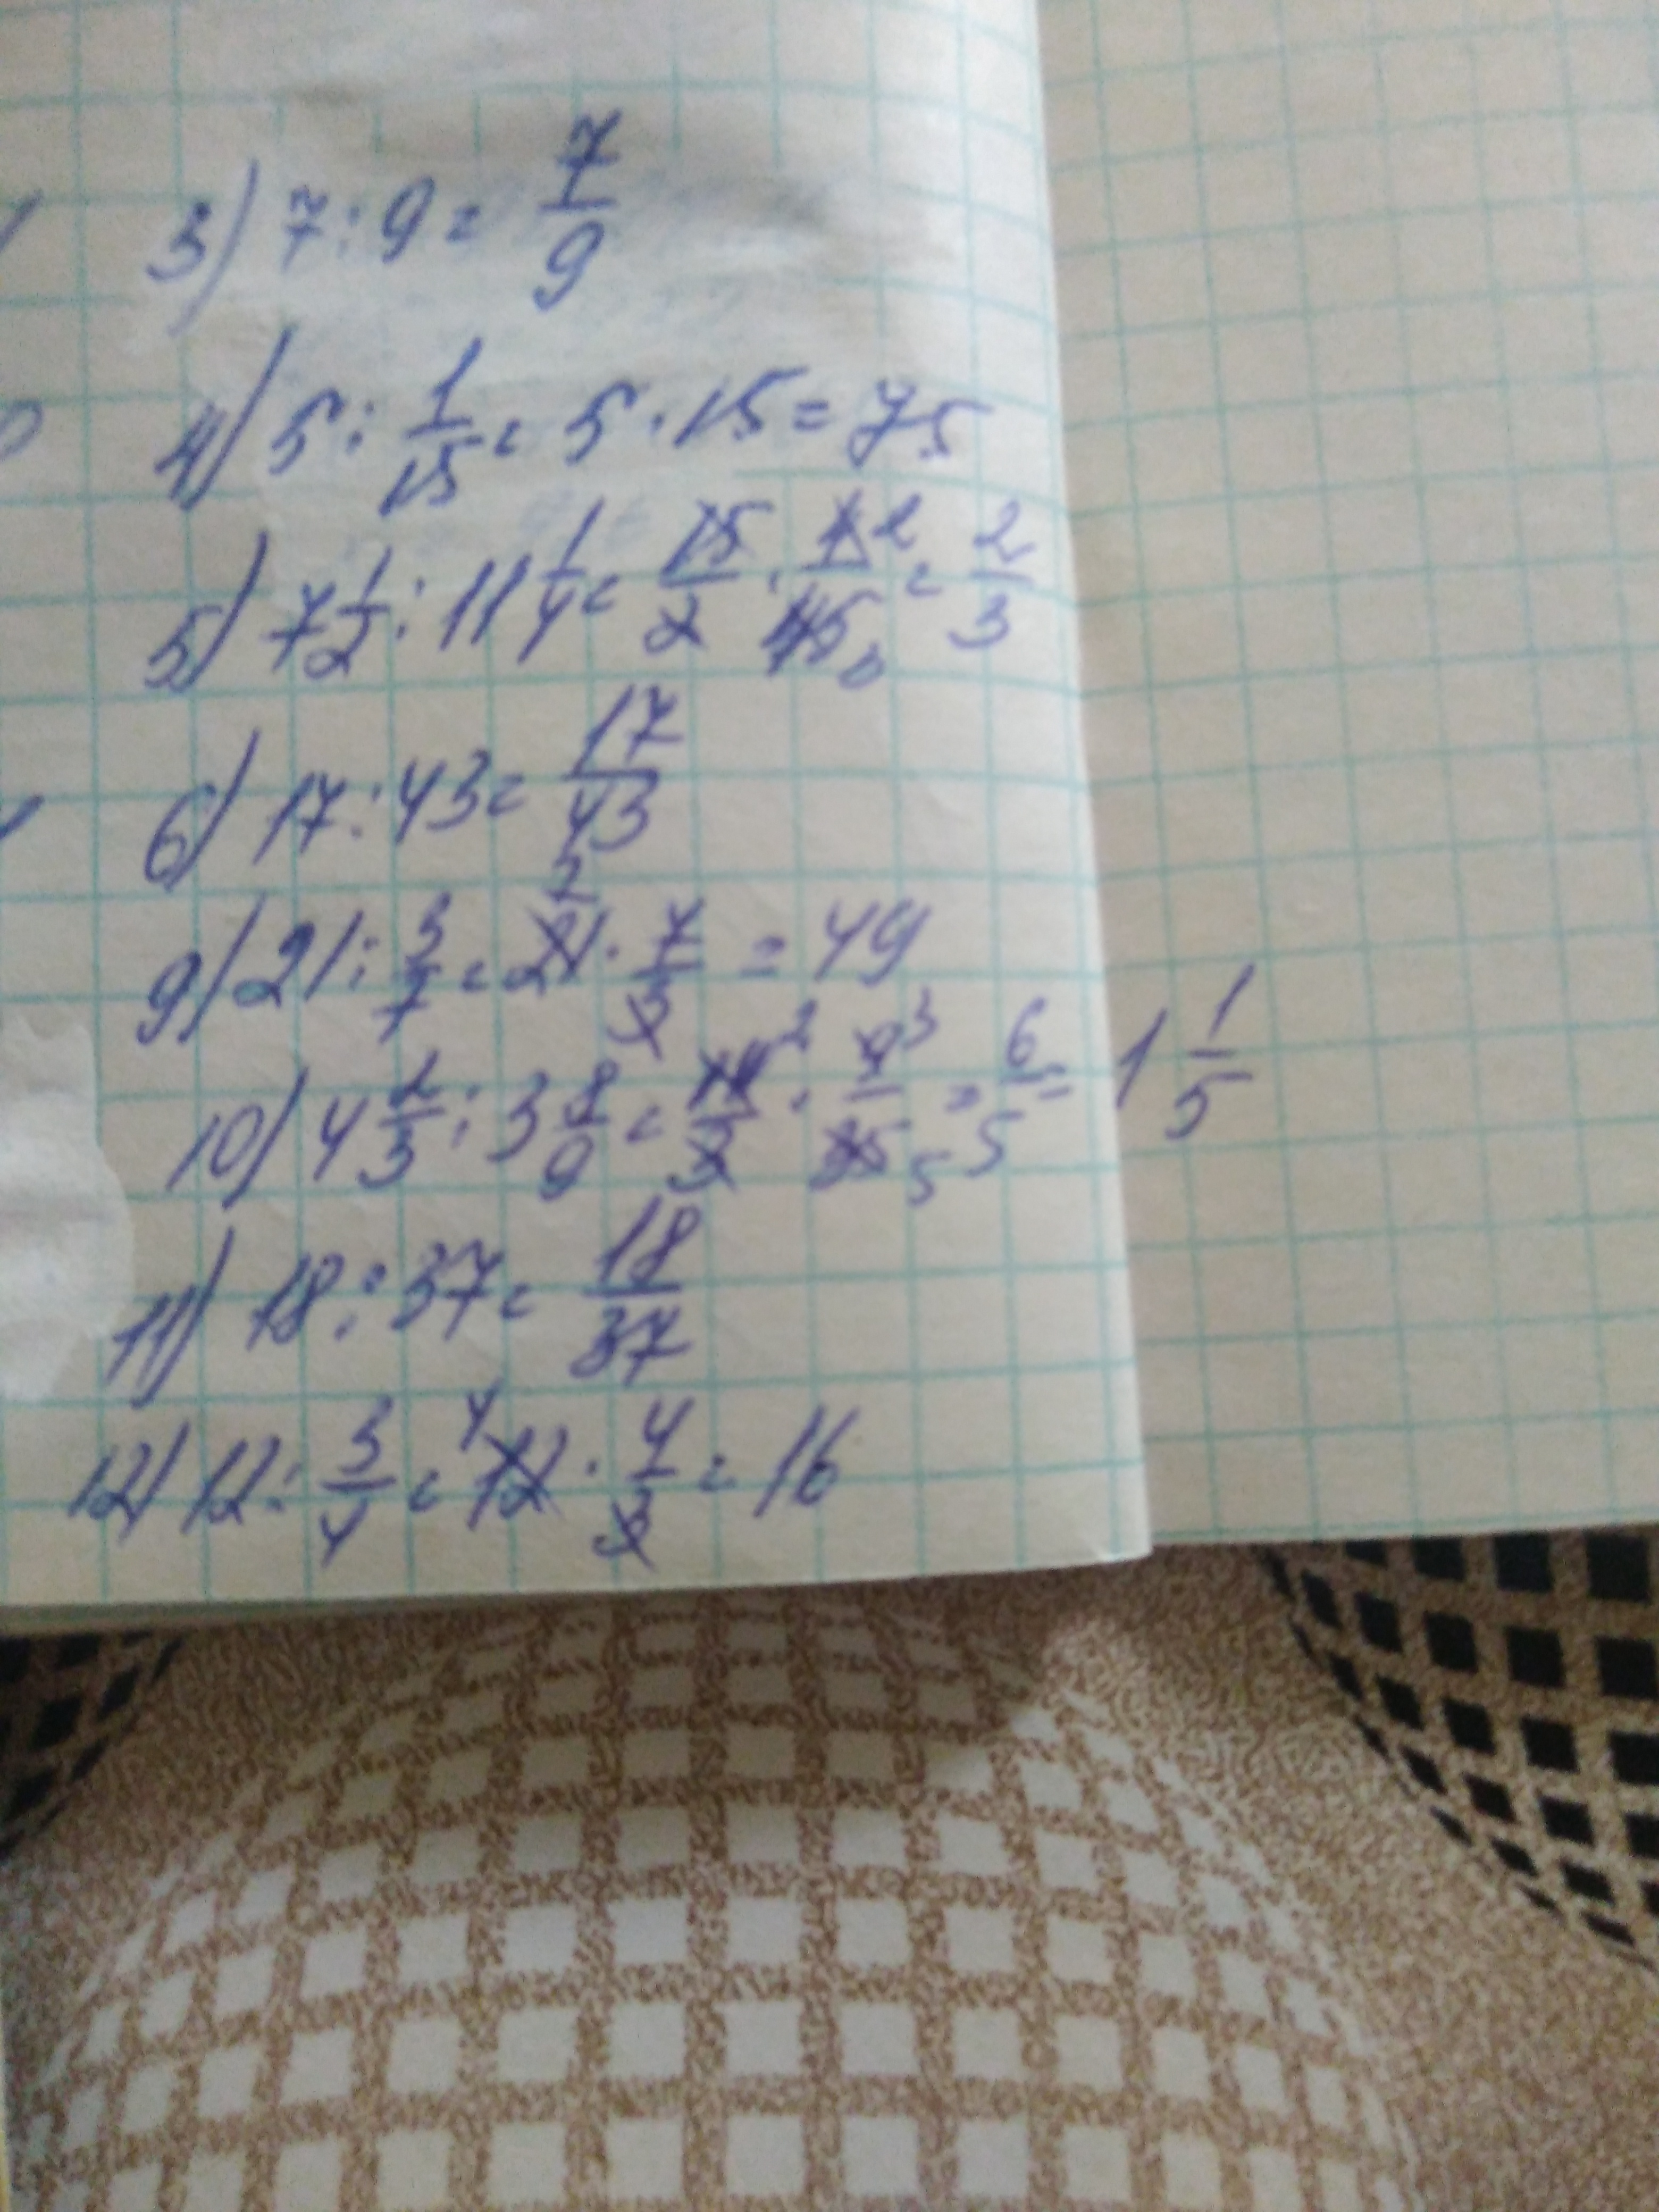 3) 7 : 9 = 7/9
4) 5 : 1/15 = 5 · 15 = 75
5) 7 1/2 : 11 1/4 = 15/2 · 4 2/45 3 = 2/3
6) 17 : 43 = 17/43
9) 21 : 3/7 = 7 21 · 7/3 = 49
10) 4 2/3 : 3 8/9 = 14 2/3 · 9 3/35 5 = 6/5 = 1 1/5
11) 18 : 37 = 18/37
12) 12 : 3/4 = 4 12 · 4/3 = 16